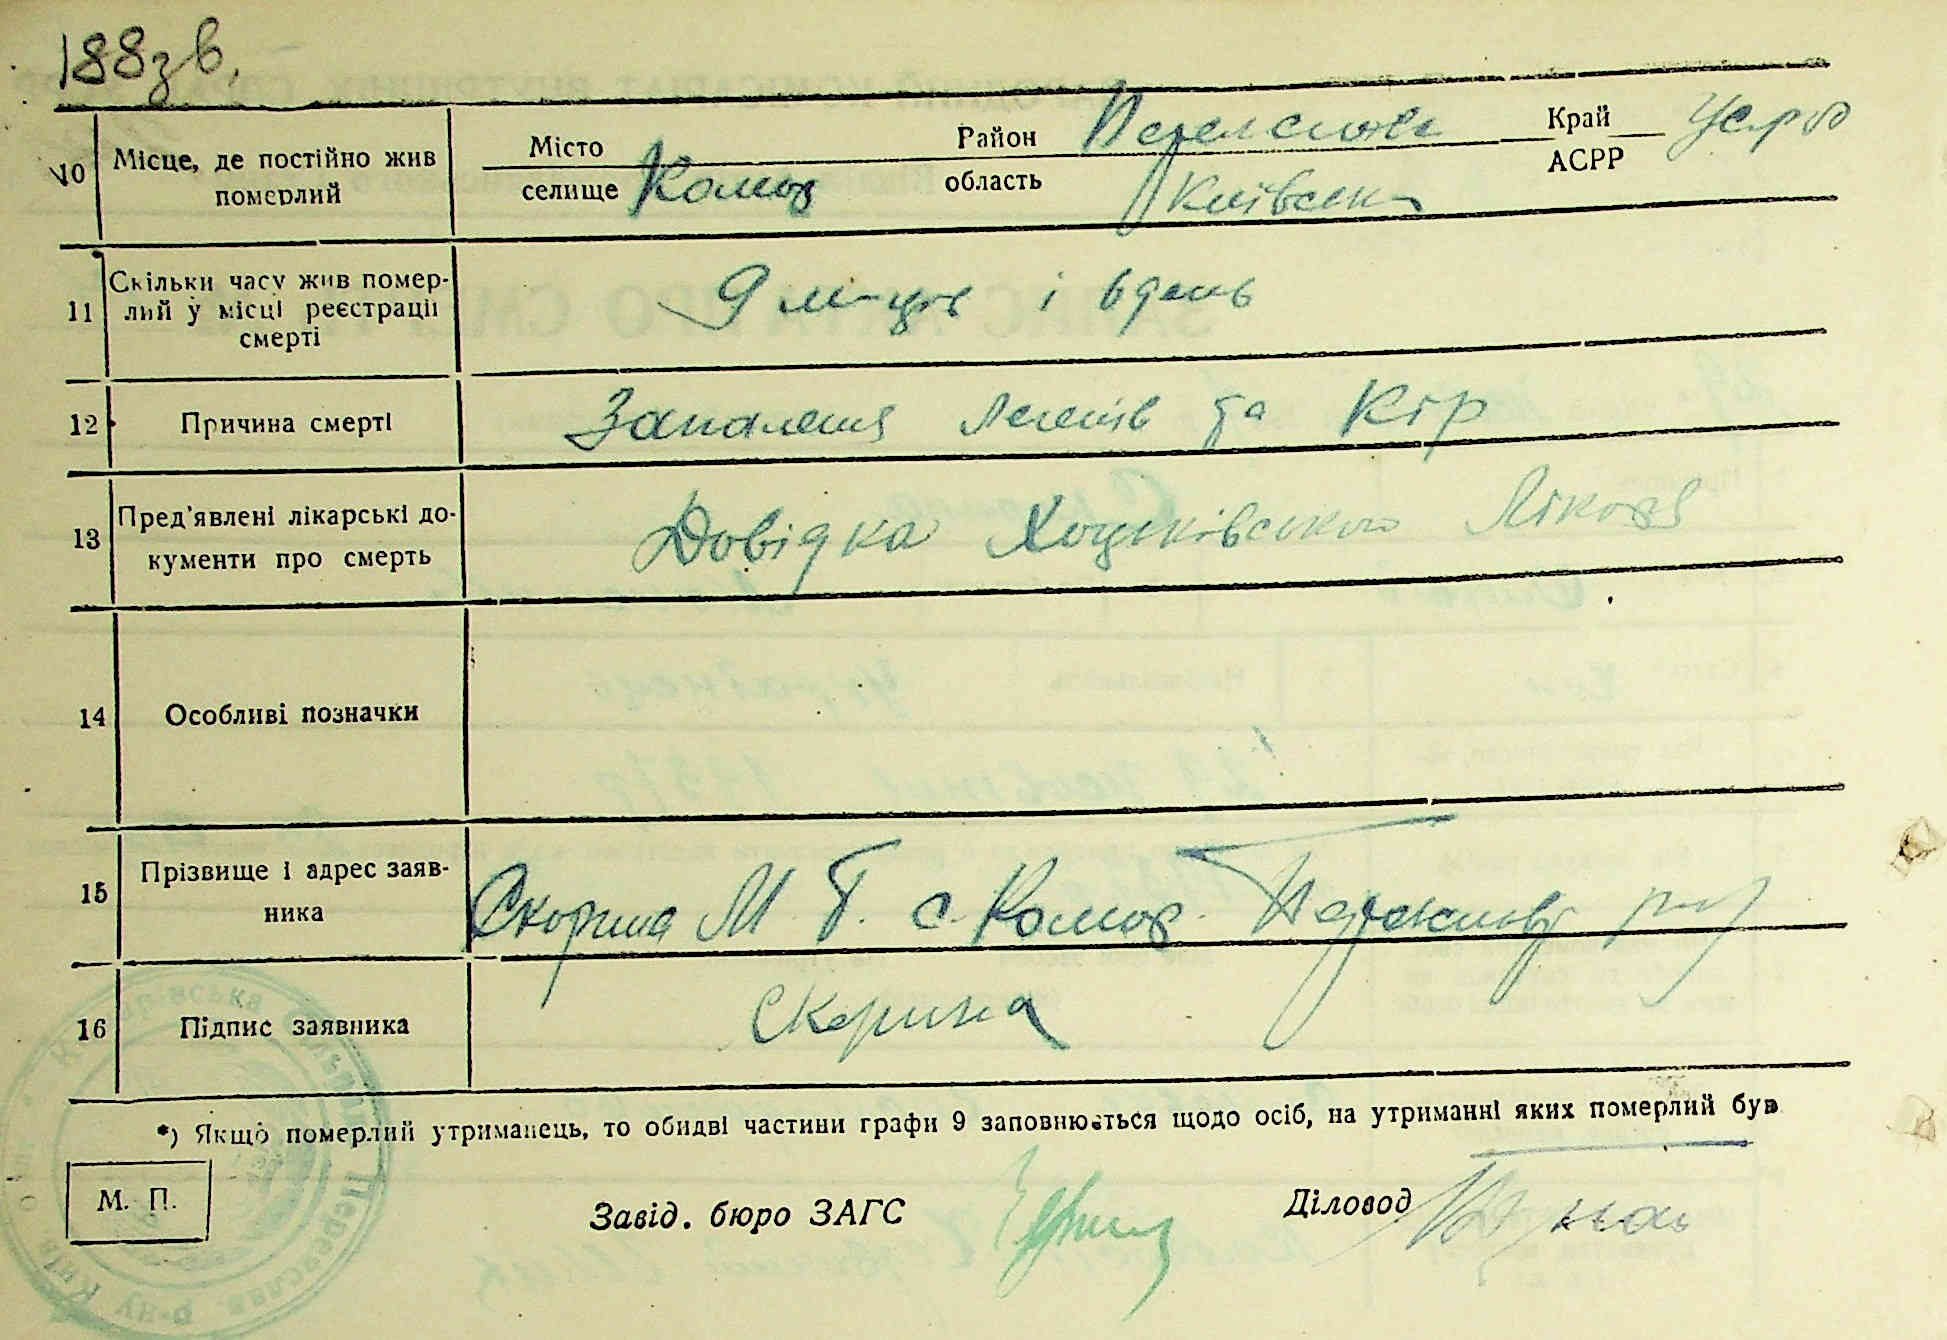 188зв.
10 Місце, де постійно жив померлий
Місто Район Переяслав Край УСРР
селище Комар область Київська АСРР
11 Скільки часу жив померлий у місці реєстрації смерті
9 м-ців і 6 день
12 Причина смерті
Запалення легенів та Кір
13 Пред'явлені лікарські документи про смерть
Довідка Хоцьківського Лікаря
14 Особливі позначки
15 Прізвище і адрес заявника
Скорина М. Т. с. Комар. Переяслав р-ну
16 Підпис заявника
Скорина
*) Якщо померлий утриманець, то обидві частини графи 9 заповнюється щодо осіб, на утриманні яких померлий був
М. П.
Завід. бюро ЗАГС
Діловод